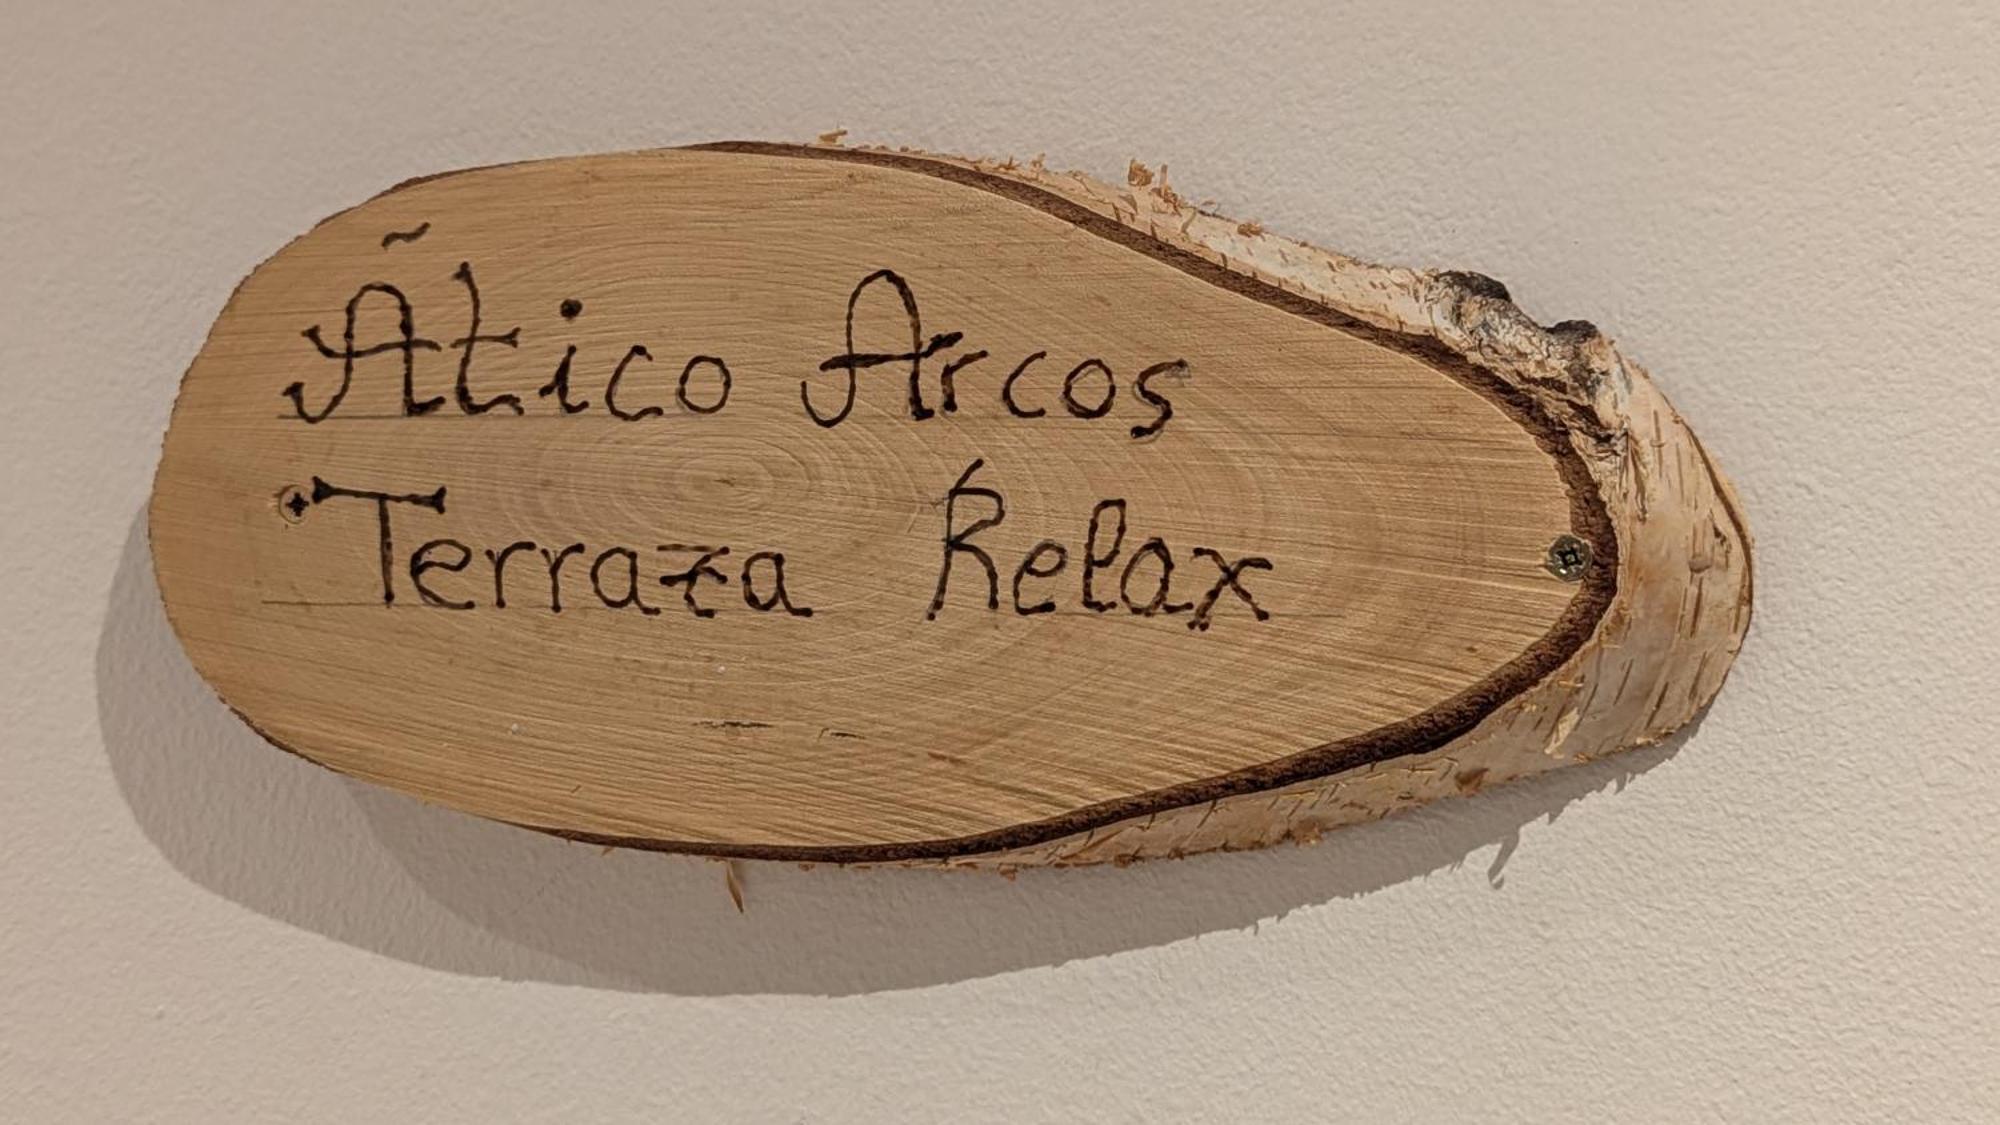 Ãtico Arcos
Terraza Relax